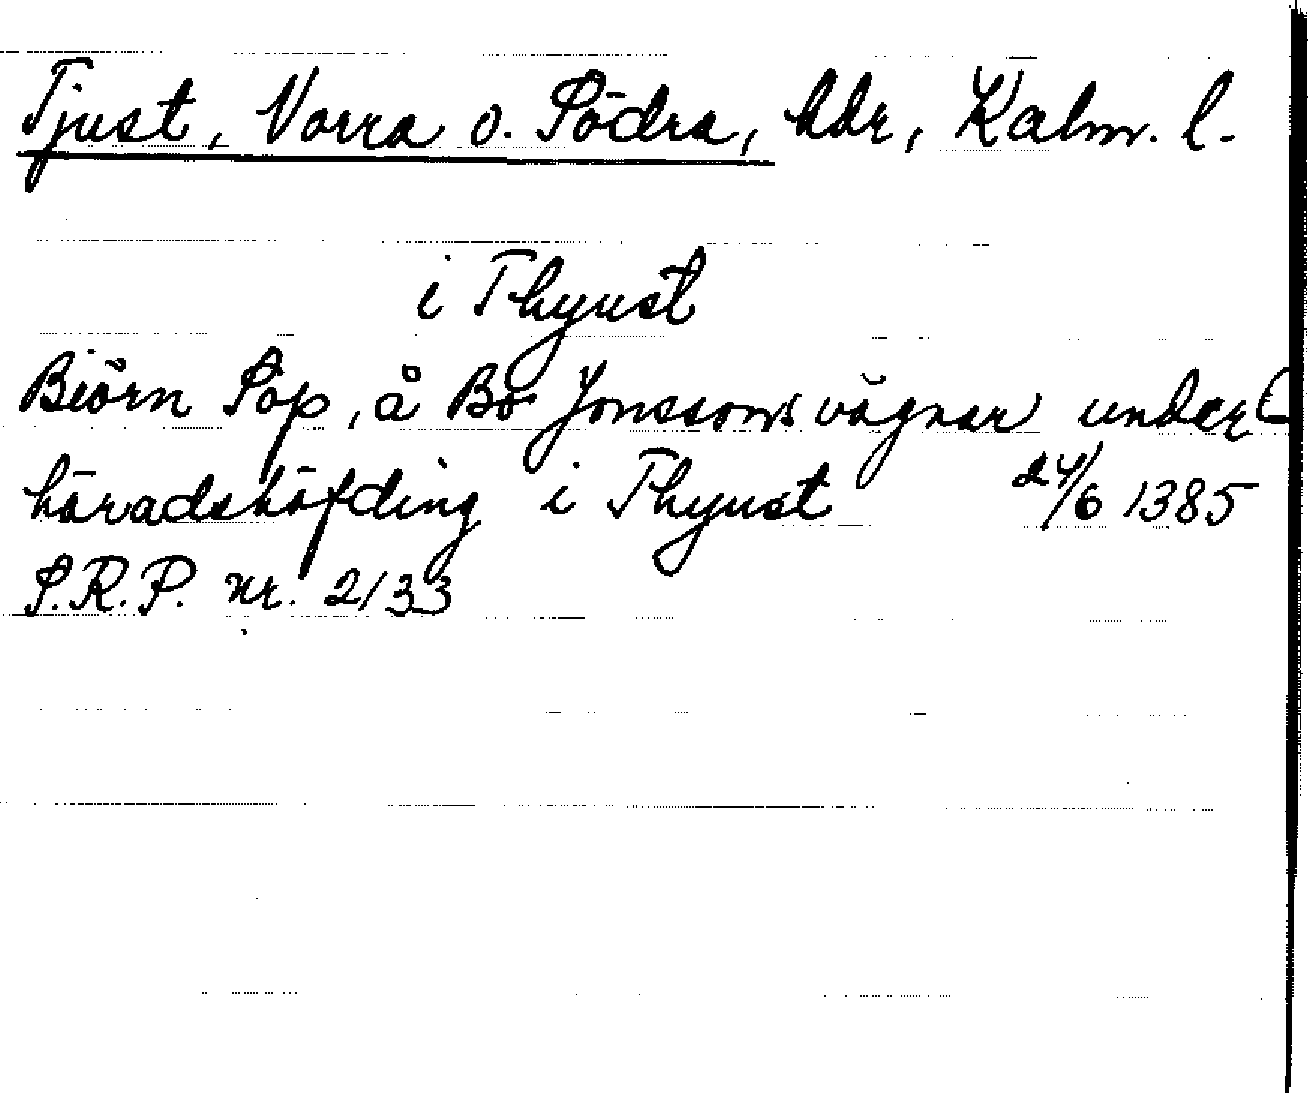 Tjust, Norra o. Södra, hdr, Kalm. l.
i Thyust
Biörn Sop, å Bo Jonssons vägnar under
häradshöfding i Thyust 24/6 1385
S.R.P. nr. 2133